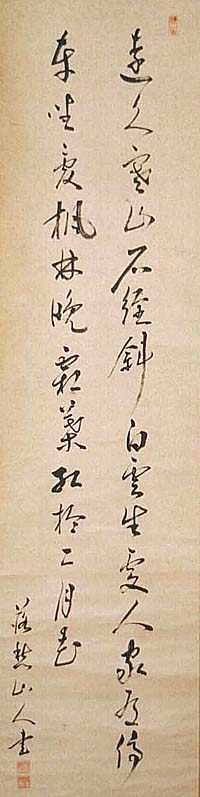 遠久寒山石径斜白雲生處人家有停
車坐愛楓林晚霜葉紅於二月花
山人書